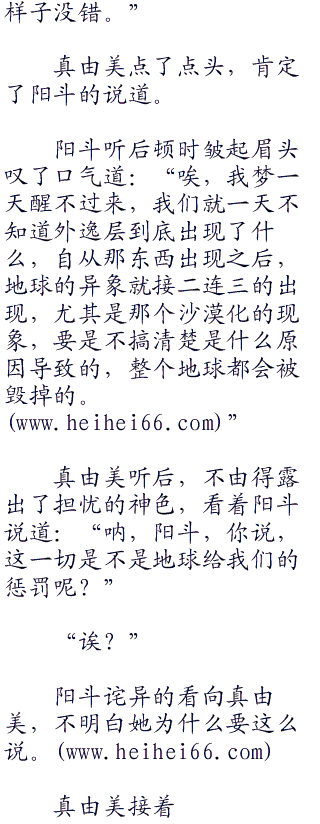 样子没错。”
真由美点了点头，肯定
了阳斗的说道。
阳斗听后顿时皱起眉头
叹了口气道：“唉，我梦一
天醒不过来，我们就一天不
知道外逸层到底出现了什
么，自从那东西出现之后，
地球的异象就接二连三的出
现，尤其是那个沙漠化的现
象，要是不搞清楚是什么原
因导致的，整个地球都会被
毁掉的。
(www.heihei66.com)”
真由美听后，不由得露
出了担忧的神色，看着阳斗
说道：“呐，阳斗，你说，
这一切是不是地球给我们的
惩罚呢？”
“诶？”
阳斗诧异的看向真由
美，不明白她为什么要这么
说。(www.heihei66.com)
真由美接着